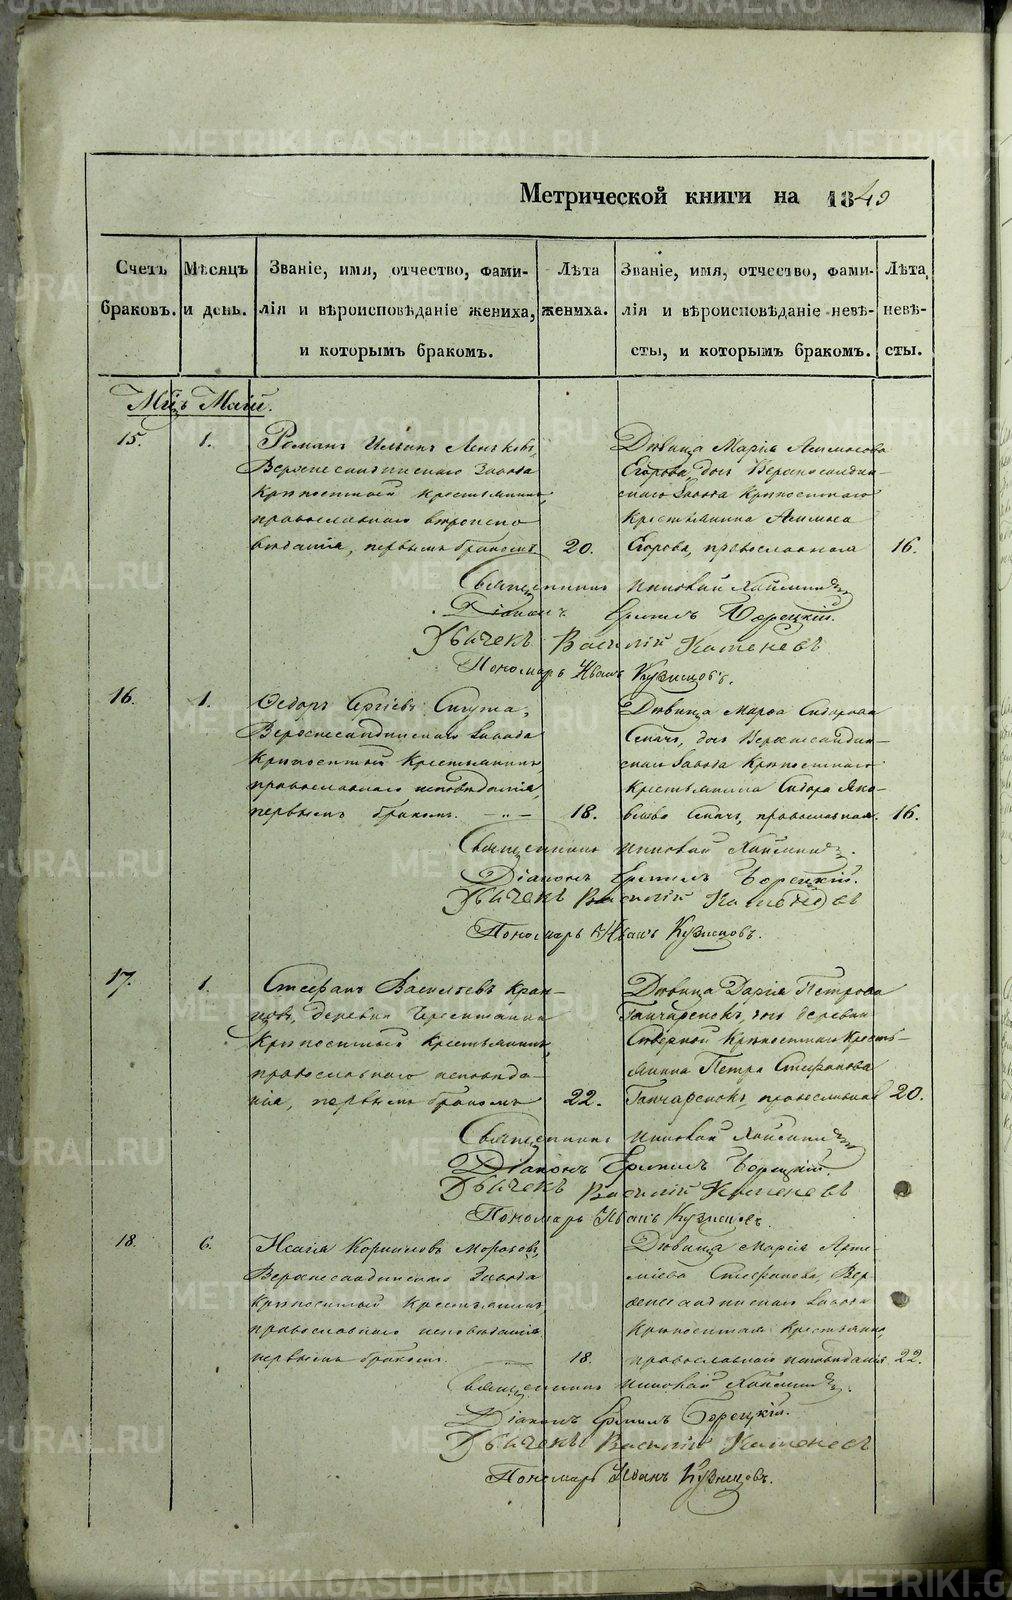 METRIKI.GASO-URAL.RU
Метрической книги на 1840
Счетъ браковъ.
Мѣсяцъ и день.
Званіе, имя, отчество, фами-
лія и вѣроисповѣданіе жениха,
и которымъ бракомъ.
Лѣта жениха.
Званіе, имя, отчество, фами-
лія и вѣроисповѣданіе невѣ-
сты, и которымъ бракомъ.
Лѣта невѣ-
сты.
Мцъ Маій.
15. 1. Романъ Ильинъ
Верхнесалдинскаго Завода
крѣпостный крестьянинъ,
православнаго вѣроиспо
вѣданія, первымъ бракомъ 20.
Дѣвица Марія
Егорова, дочь Верхнесалдин-
скаго Завода крѣпостнаго
крестьянина
Егорова, православная 16.
Священникъ
Діаконъ Ермилъ Борецкій.
Дьячекъ Василій Каменевъ
Пономарь Иванъ Кузнецовъ.
16. 1. Ѳедоръ Сергѣевъ
Верхнесалдинскаго Завода
крѣпостный крестьянинъ,
православнаго исповѣданія,
первымъ бракомъ. 18.
Дѣвица Марѳа Сидорова
дочь Верхнесалдин-
скаго Завода крѣпостнаго
крестьянина Сидора Яко-
влева православная. 16.
Священникъ
Діаконъ Ермилъ Борецкій.
Дьячекъ Василій Каменевъ
Пономарь Иванъ Кузнецовъ.
17. 1. Стефанъ Васильевъ
деревни
крѣпостный крестьянинъ,
православнаго исповѣда-
нія, первымъ бракомъ 22.
Дѣвица Дарія Петрова
дочь деревни
Сѣверной крѣпостнаго кресть-
янина Петра Стефанова
православная 20.
Священникъ
Діаконъ Ермилъ Борецкій.
Дьячекъ Василій Каменевъ
Пономарь Иванъ Кузнецовъ.
18. 6. Исаія Корниловъ Морозовъ,
Верхнесалдинскаго Завода
крѣпостный крестьянинъ,
православнаго исповѣданія
первымъ бракомъ. 18.
Дѣвица Марія Арте-
міева Стефанова, Вер-
хнесалдинскаго Завода
крѣпостная крестьянка,
православнаго исповѣданія 22.
Священникъ
Діаконъ Ермилъ Борецкій.
Дьячекъ Василій Каменевъ
Пономарь Иванъ Кузнецовъ.